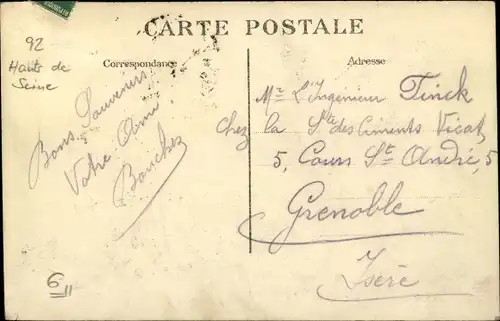 CARTE POSTALE
Correspondance
Adresse
92
Hauts de
Seine
Bons Souvenirs
Votre Ami
Bouchez
Mr L'Ingenieur Finck
Chez la Sté des Ciments Vicat
5, Cours St André, 5
Grenoble
Isère
6